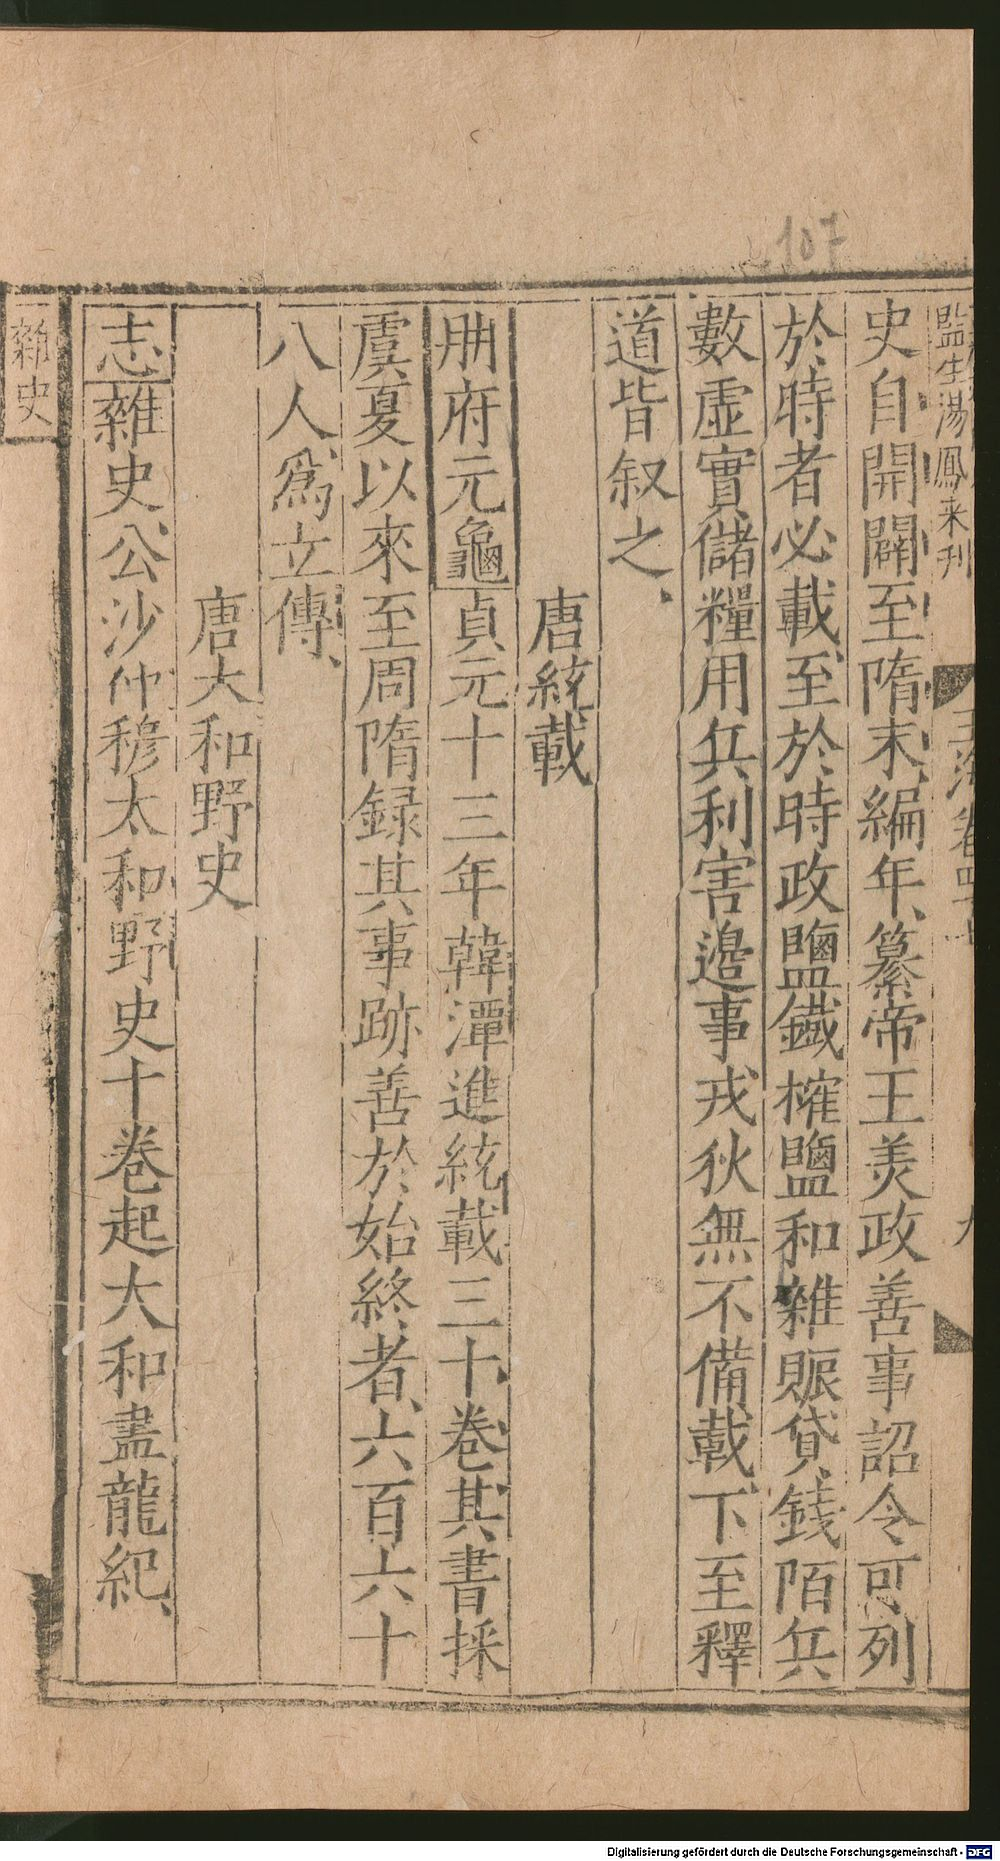 107
監生湯鳳来刋
玉海卷四十七
九
史自開闢至隋末、編年、纂帝王美政善事詔令可列
於時者必載、至於時政鹽鐵榷鹽和雜賑貸、錢陌兵
數虛實、儲糧用兵、利害邊事、戎狄無不備載、下至釋
道皆叙之、
唐統載
册府元龜貞元十三年韓潭進統載三十卷、其書採
虞夏以來至周隋録其事跡善於始終者、六百六十
八人、爲立傳、
唐大和野史
志雜史、公沙仲穆太和野史十卷起大和盡龍紀、
雜史
Digitalisierung gefördert durch die Deutsche Forschungsgemeinschaft - DFG